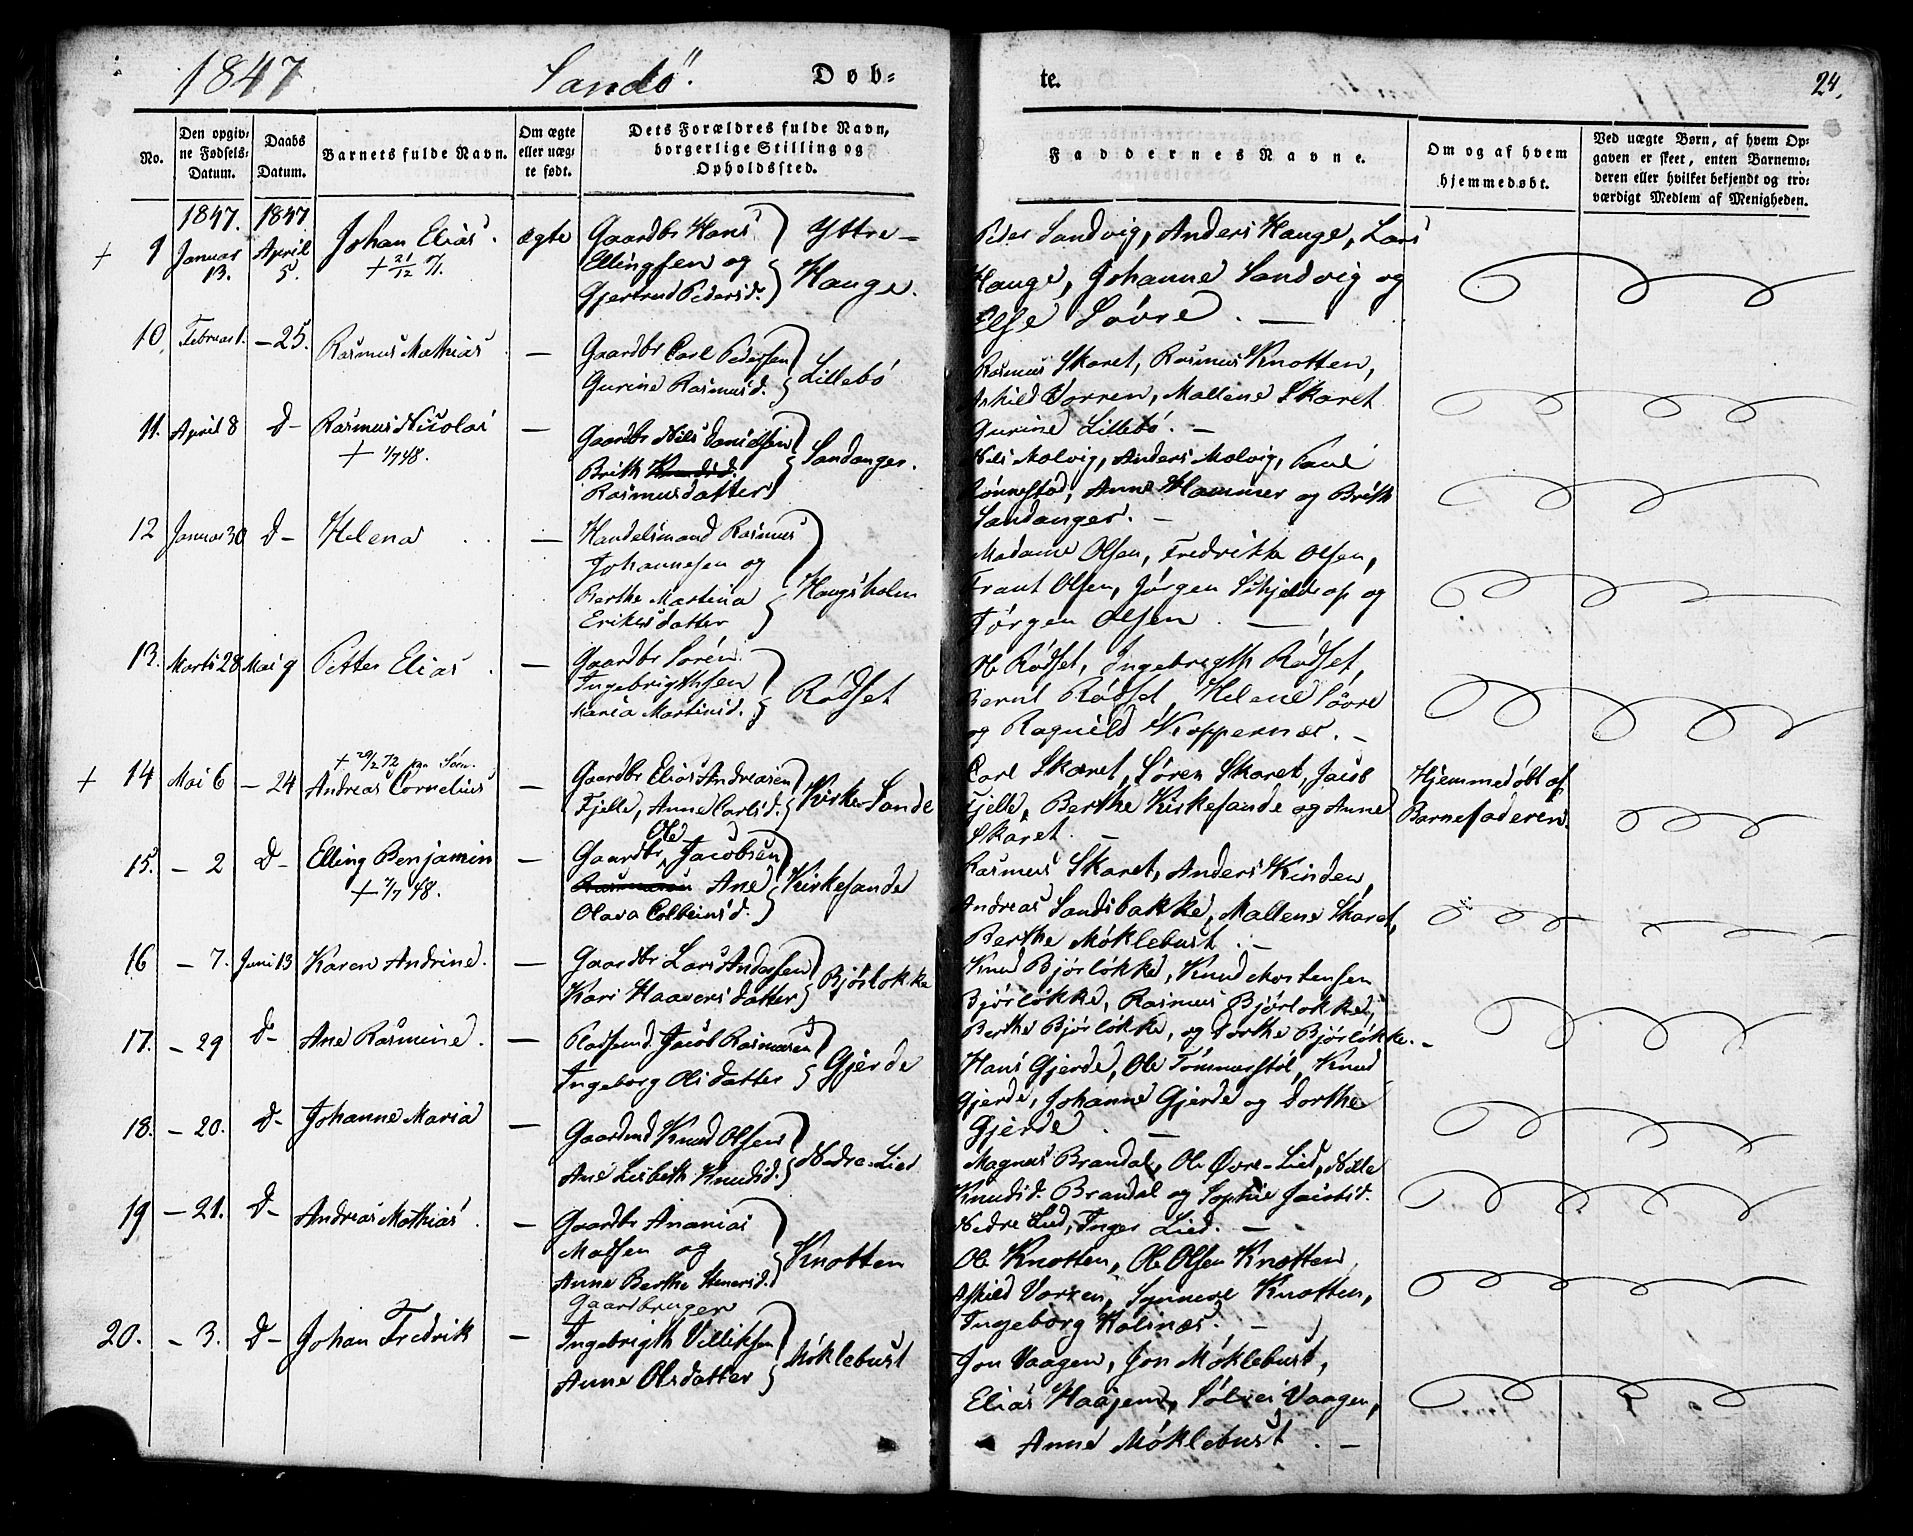 1847. Sandö. Døb= te. 24.
No.
Den opgiv=
ne Fødsels=
Datum.
Daabs
Datum.
Barnets fulde Navn.
Om ægte
eller uæg=
te født.
Dets Forældres fulde Navn,
borgerlige Stilling og
Opholdssted.
Faddernes Navne.
Om og af hvem
hjemmedøbt.
Ved uægte Børn, af hvem Op=
gaven er skeet, enten Barnemo=
deren eller hvilket bekjendt og tro=
værdigt Medlem af Menigheden.
1847. 1847.
+ 9 Januar 13. April 5. Johan Elias. ægte
+ 21/12
Gaardbr Hans
Ellingsen og
Gjertrud Pedersd.
Yttre-
Hauge.
Peder Sandvig, Anders Hauge, Lars
Hauge, Johanne Sandvig og
Else Sövre. —
10. Februar 1. — 25. Rasmus Mathias —
Gaardbr Carl Pedersen
Gurine Rasmusd.
Lillebö
Rasmus Skaret, Rasmus Knotten,
Askild Vorren, Mallene Skaret
Gurine Lillebö. —
11. April 8 d- Rasmus Nicolai —
+ 1/7 48.
Gaardbr Nils Danielsen
Brith
Rasmusdatter
Sandanger.
Nils Molvig, Anders Molvig, Paul
Rönnestad, Anne Hammer og Brith
Sandanger. —
12 Januar 30 d- Helena —
Handelsmand Rasmus
Johannesen og
Berthe Martina
Eriksdatter
Haugsholm
Madame Olsen, Fredrikke Olsen,
Frant Olsen, Jörgen Schjelderop og
Jörgen Olsen. —
13. Marts 28 Mai 9 Petter Elias —
Gaardbr Sören
Ingebrigthsen
Maria Martinsd.
Rödset
Ole Rödset, Ingebrigth Rödset,
Bernt Rödset, Helene Sövre
og Ragnild Koppernæs. —
+ 29/2 72
+ 14 Mai 6 — 24 Andreas Cornelius —
Gaardbr Elias Andreasen
Fjelle, Anne Carlsd.
Kirke-Sande
Carl Skaret, Sören Skaret, Jacob
Fjelle, Berthe Kirkesande og Anne
Skaret. —
Hjemmedöbt af
Barnefaderen.
15. — 2 d- Elling Benjamin —
+ 7/7 48.
Ole
Gaardbr Jacobsen
Ane
Olava Colbeinsd.
Kirkesande
Rasmus Skaret, Anders Kinden,
Andreas Sandsbakke, Mallene Skaret,
Berthe Möklebust. —
16 — 7. Juni 13 Karen Andrine. —
Gaardbr Lars Andersen
Kari Haaversdatter
Bjørlökke
Knud Bjørlökke, Knud Mortensen
Bjørlökke, Rasmus Bjørlökke,
Berthe Bjørlökke, og Dorthe Bjørlökke. —
17. — 29 d- Ane Rasmine. —
Pladsmd. Jacob Rasmusen
Ingeborg Olsdatter
Gjerde
Hans Gjerde, Ole Tömmerstöl, Knud
Gjerde, Johanne Gjerde og Dorthe
Gjerde. —
18. — 20. d- Johanne Maria —
Gaardmd Knud Olsen
Ane Lisbeth Knudsd.
Nedre-Lied
Magnus Brandal, Ole Övre-Lied, Nille
Knudsd. Brandal og Sophie Jacobsd.
Nedre Lied, Inger Lied. —
19 — 21. d- Andreas Mathias. —
Gaardbr Ananias
Madsen og
Anne Berthe Stenersd.
Knotten
Ole Knotten, Ole Olsen Knotten
Askild Vorren, Synneve Knotten,
Ingeborg Kalsnæs. —
20. — 3. d- Johan Fredrik —
Gaardbruger
Ingebrigth Villiksen
Anne Olsdatter
Möklebust
Jon Vaagen, Jon Möklebust,
Elias Haajem, Sölvei Vaagen,
Anne Möklebust. —